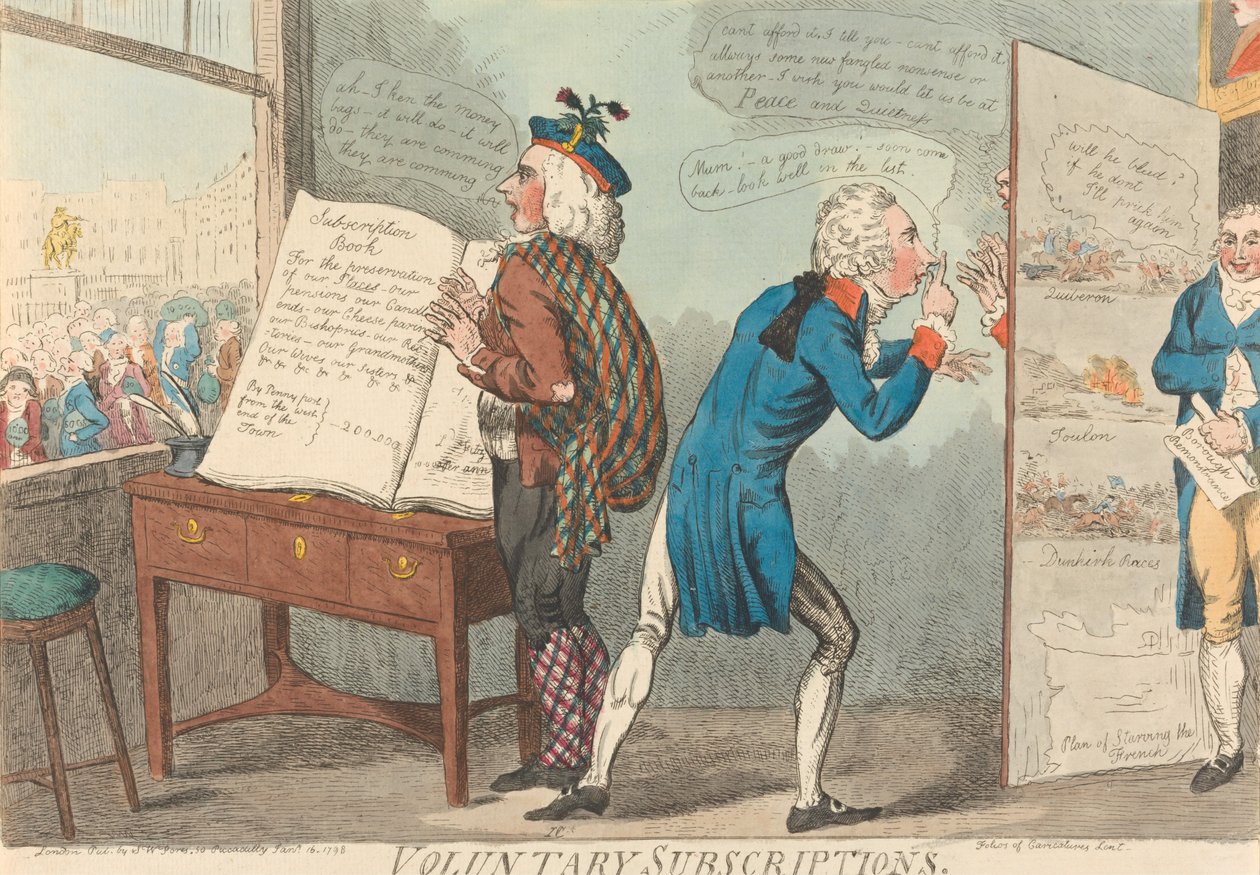 ah - I ken the money
bags - it will do - it will
do - they are comming
they are comming
cant afford it, I tell you - cant afford it,
allways some new fangled nonsense or
another - I wish you would let us be at
Peace and Quietness
Mum! - a good draw! - soon come
back - look well in the list.
will he bleed?
if he dont
I'll prick him
again
Subscription
Book
For the preservation
of our Places - our
pensions our Candle
ends - our Cheese parings
our Bishoprics - our Rec-
-tories - our Grandmothers
Our Wives our Sisters &c
&c &c &c &c &c &c
By Penny post
from the west
end of the
Town
200-000
per ann
Quiberon
Toulon
Dunkirk Races
Plan of Starving the
French
Borough
Remonstrance
IC
London Pub. by S W Fores. 50 Piccadilly Jany. 16. 1798
Folios of Caricatures Lent -
VOLUNTARY SUBSCRIPTIONS.